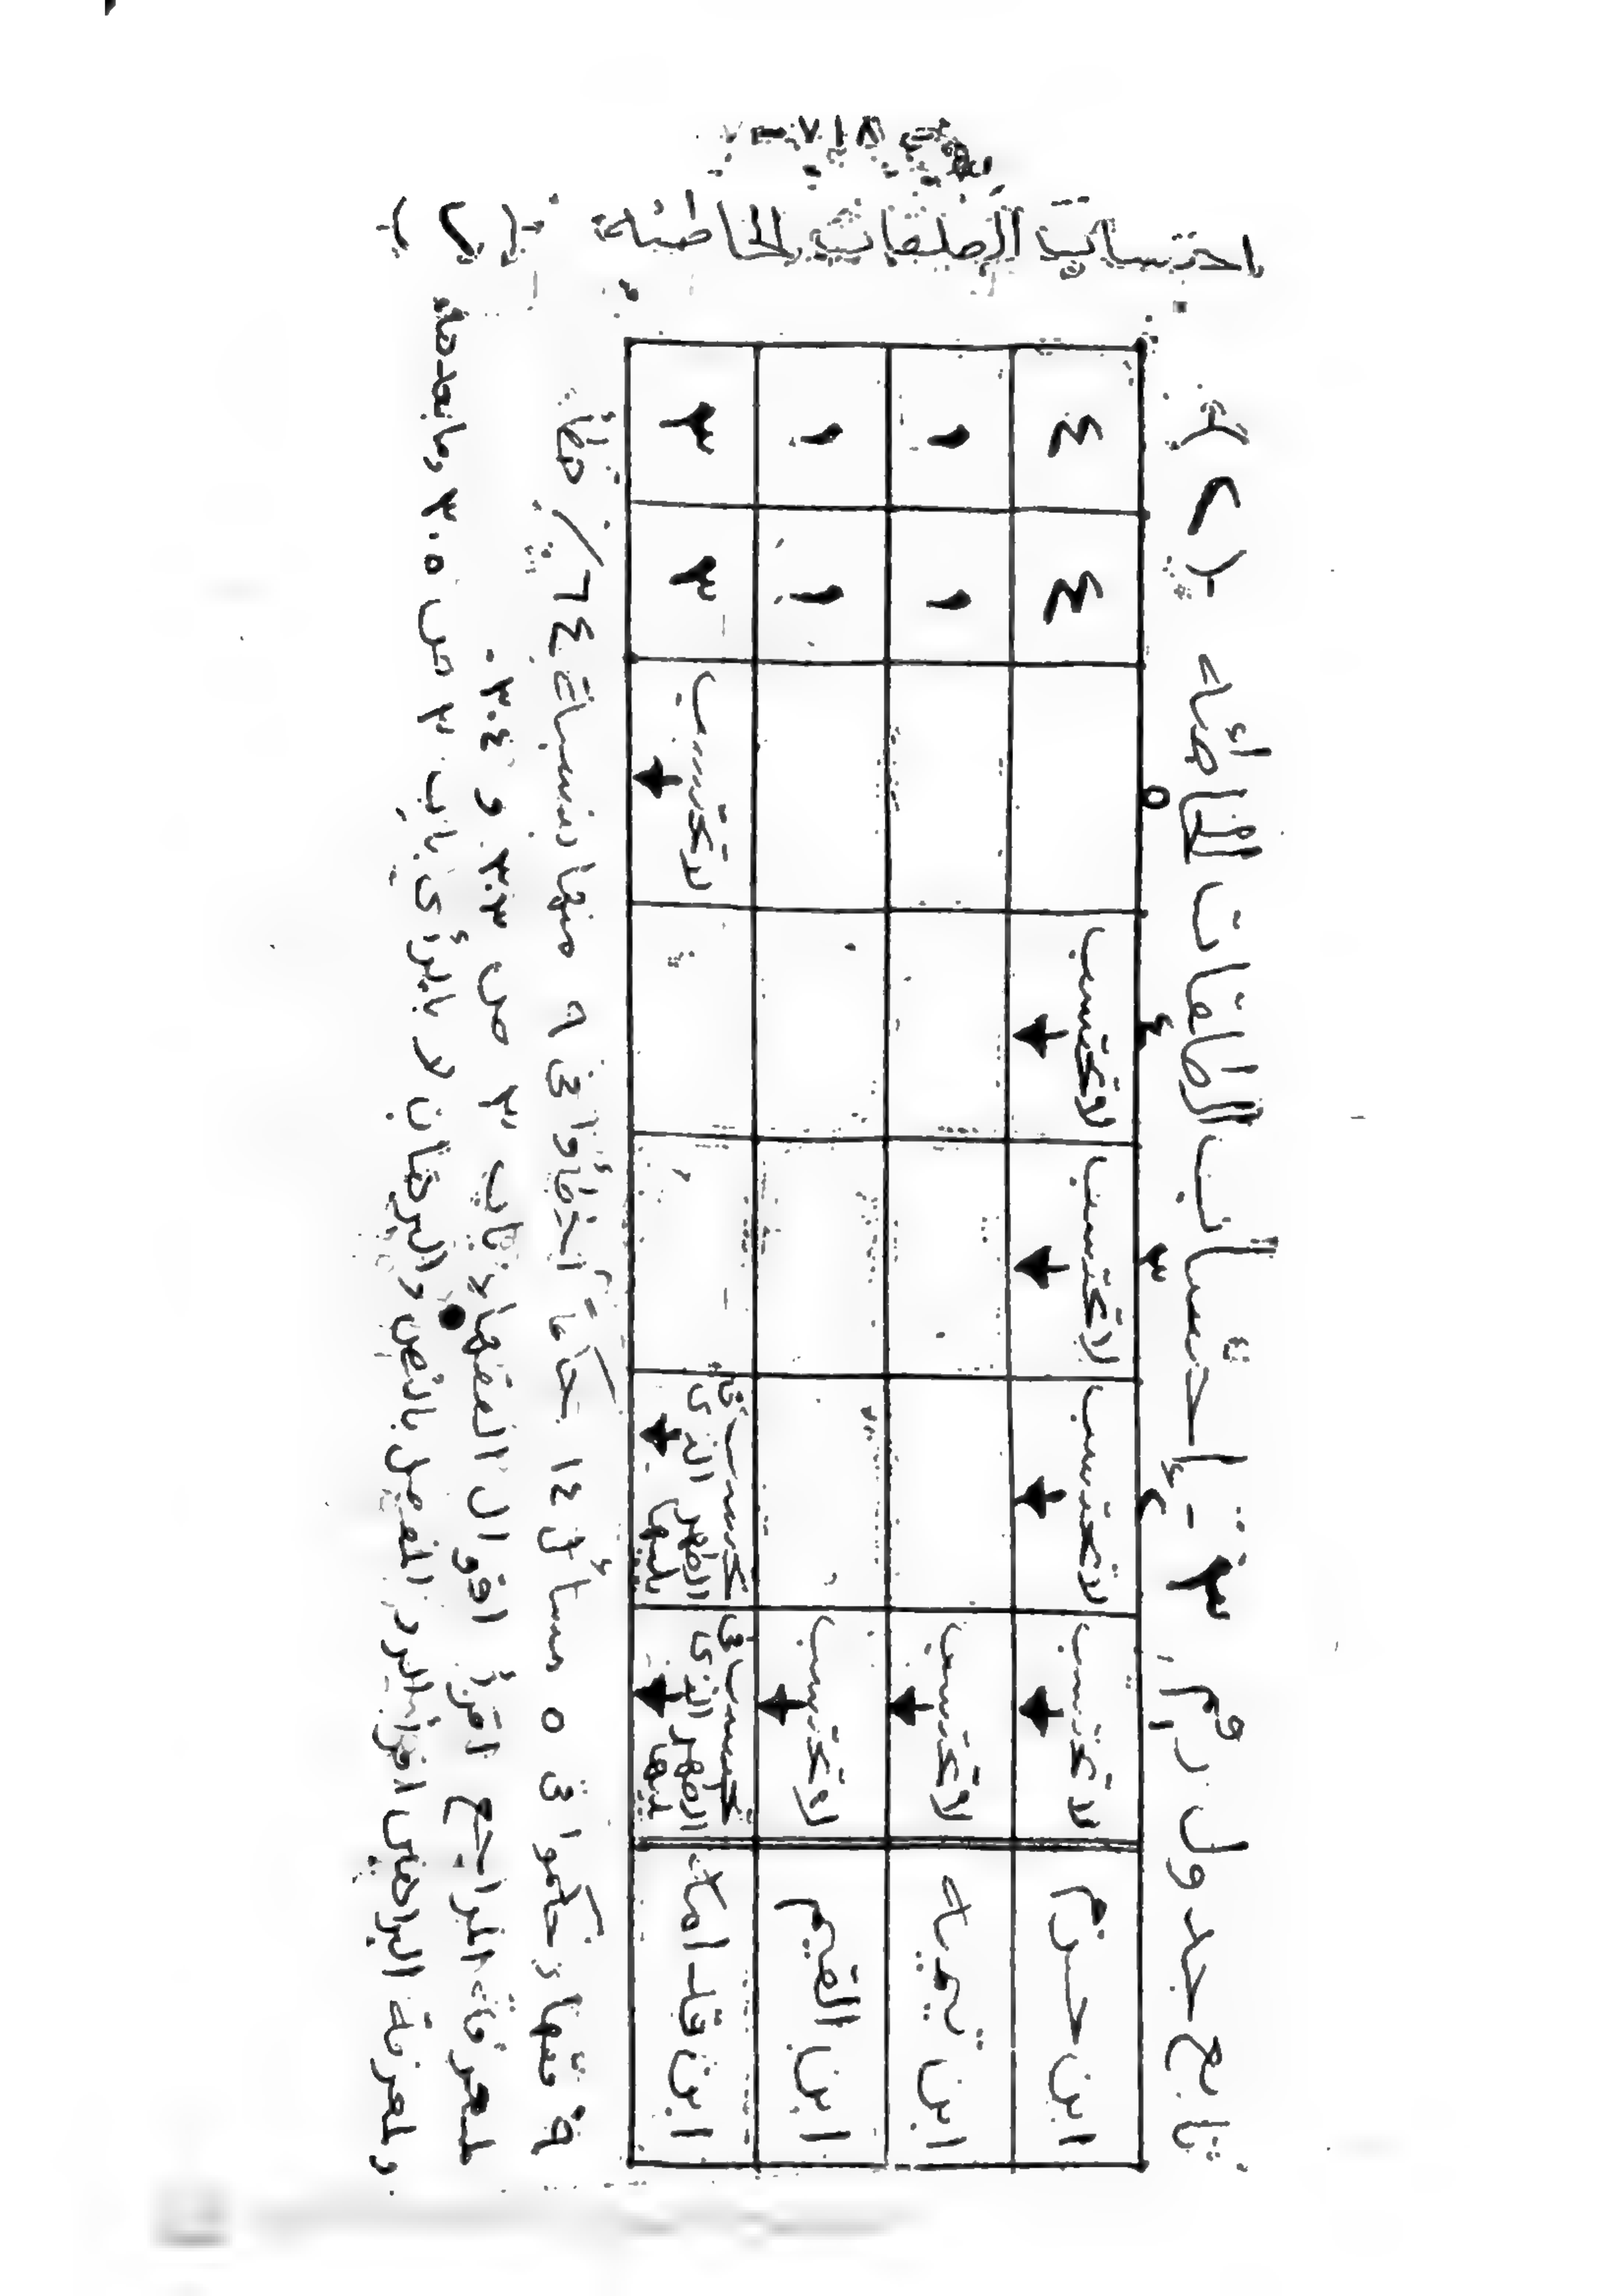 احتساب الطلقات الخاطئة (٢)
تابع جدول رقم ٣ - إحتساب الطلقات الخاطئه (٢)
٢ ٣ ٤ ٥
ابن حزم لا تحتسب لا تحتسب لا تحتسب لا تحتسب ٤ ٤
ابن تيميه لا تحتسب ١ ١
ابن القيم لا تحتسب ١ ١
ابن قدامة تحتسب فى الطهر الذى يليها تحتسب فى الطهر الذى يليها لا تحتسب ٣ ٣
حكموا فى ٥ مسائل ١٤ حكماً أخطأوا فى ٩ منها بنسبة ٦٤٪ خطأ.
لمعرفة المراجع اقرأ اقوال الفقهاء باب ٢ ص ٣٠٣ و ٣٠٤.
ولمعرفة البراهين اقرأ الرد المفصل بالنص والبرهان لا بالرأى باب ٣ ص ٣٠٥ وما بعدها